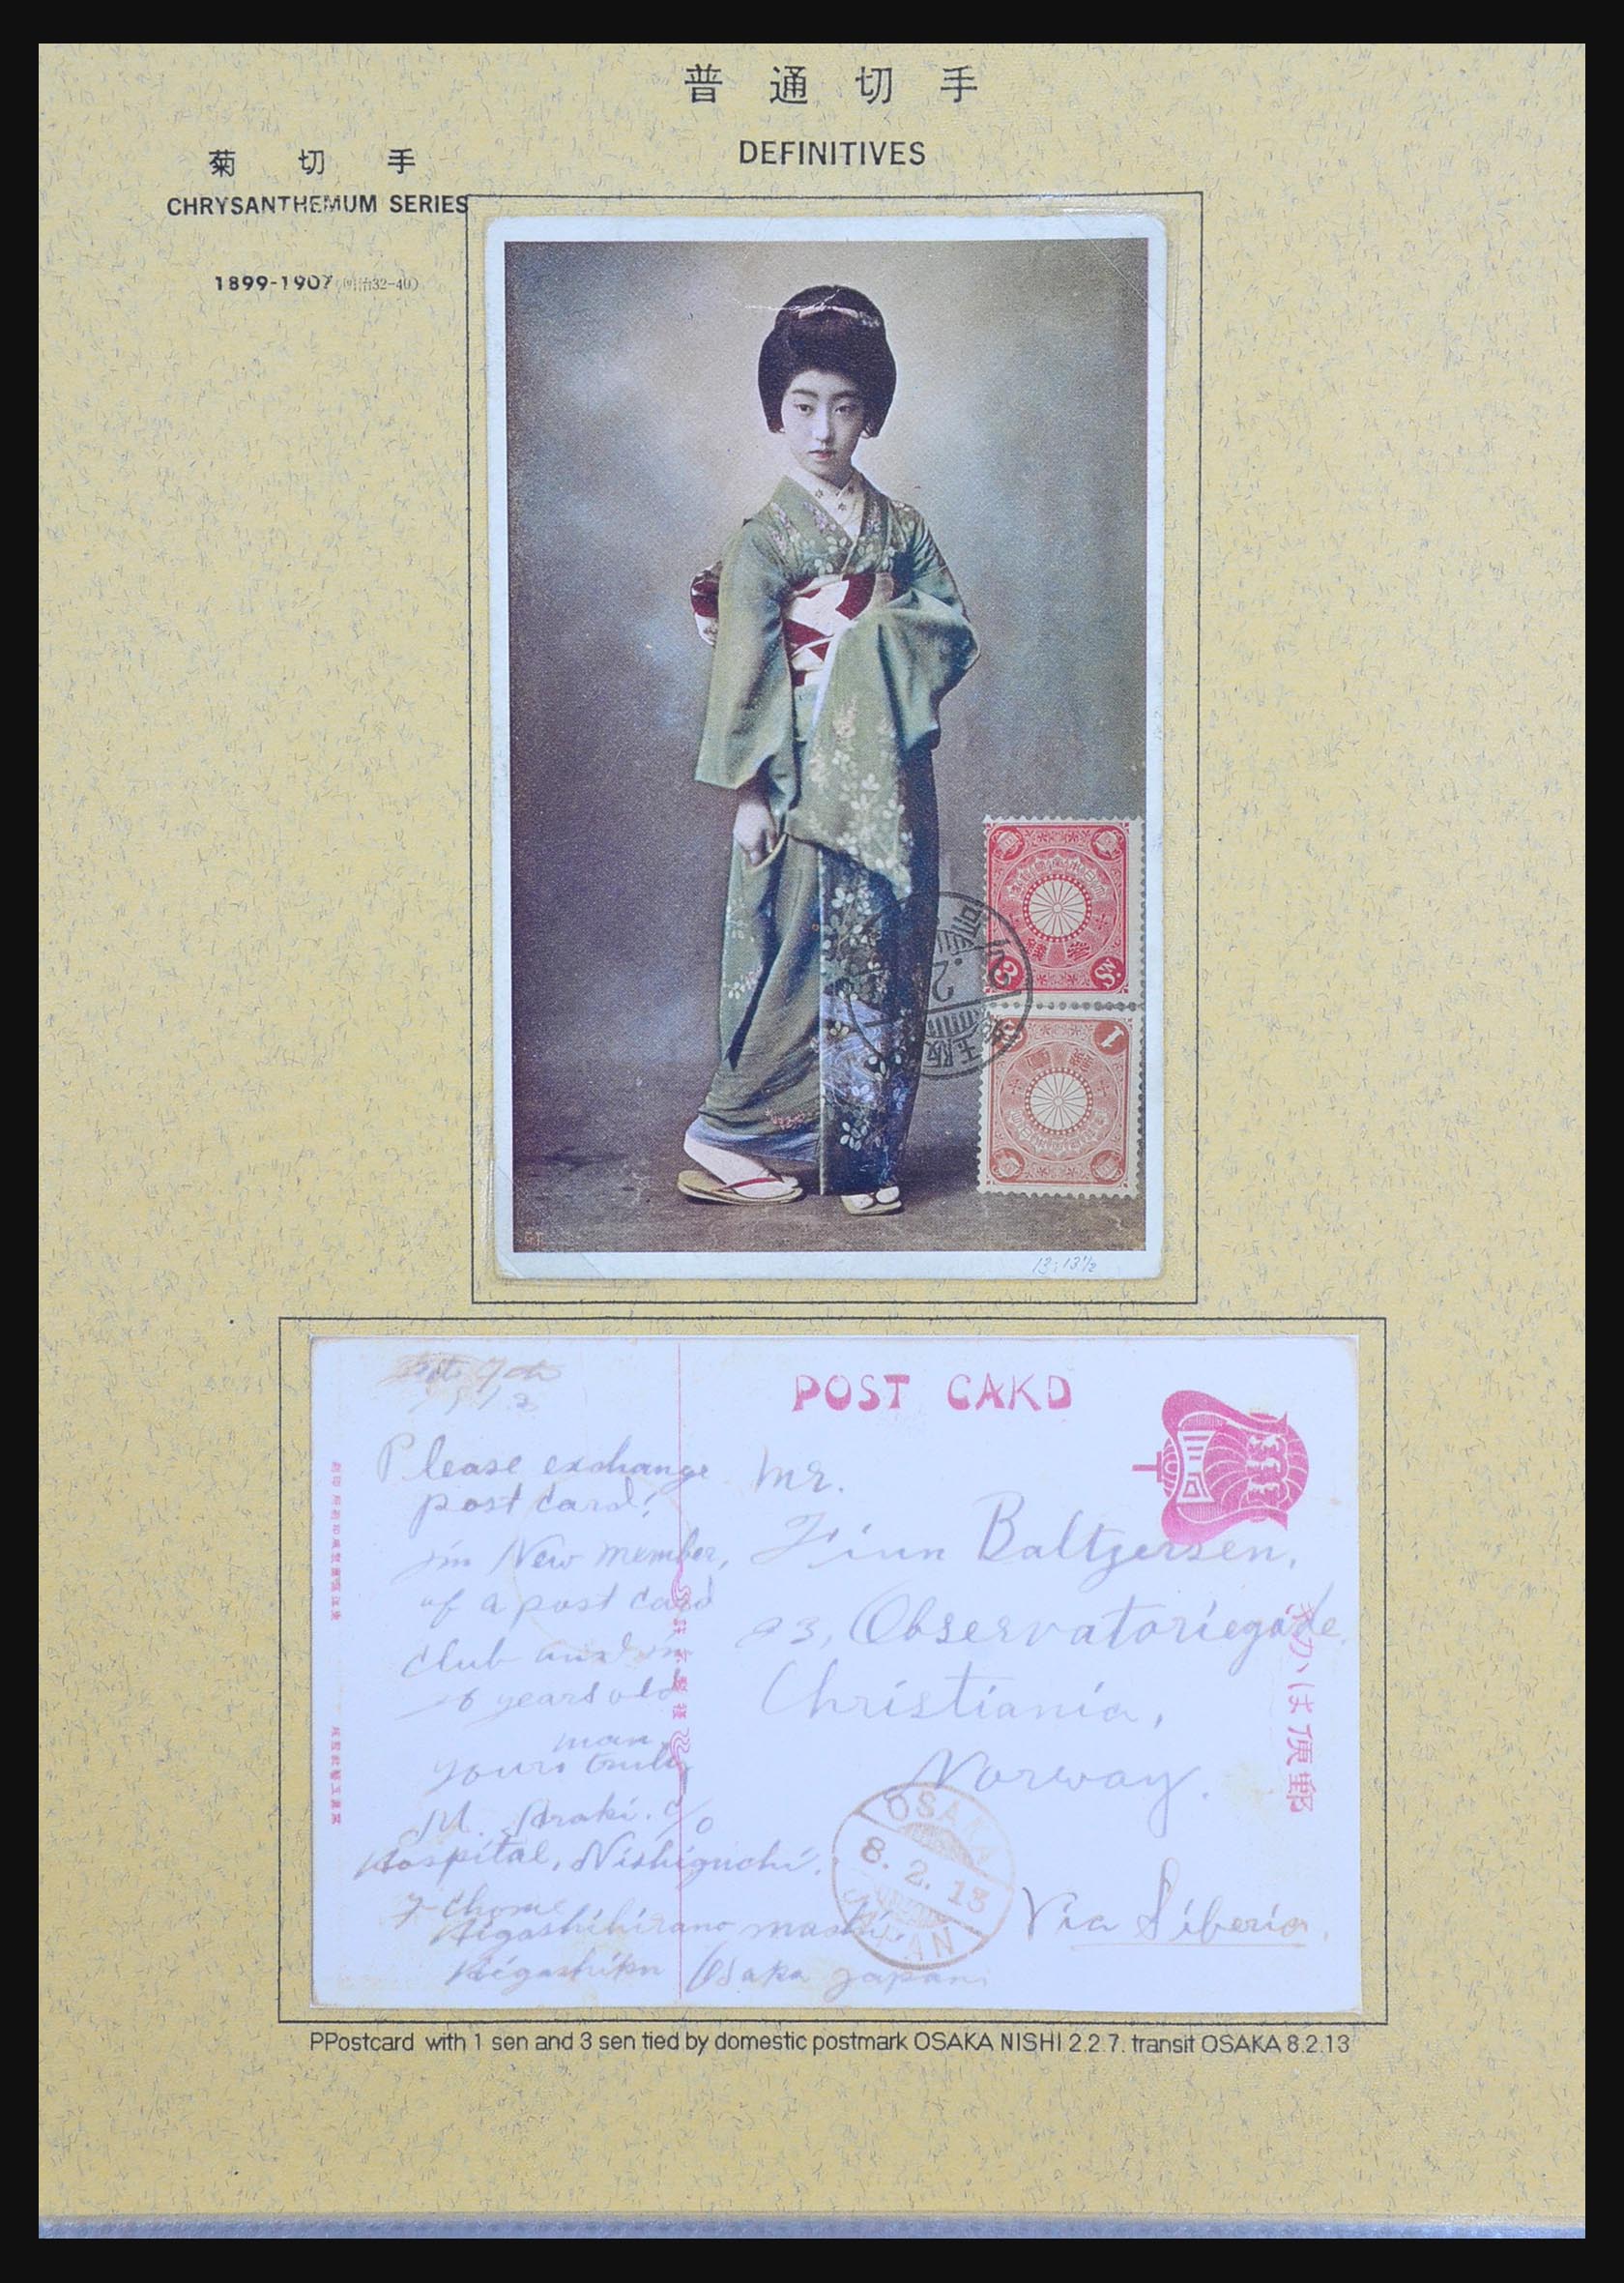 普通切手
DEFINITIVES
菊切手
CHRYSANTHEMUM SERIES
1899-1907 (明治32-40)
3 Sn.
1
GT
13:13½
POST CARD
1913
Please exchange
post card!
im New member,
of a post card
club and im
years old
man
yours truly
M. Araki. c/o
Hospital, Nishiguchi.
7-chome
Higashihirano machi.
Higashiku Osaka Japan
Mr.
Finn Baltzersen,
23, Observatoriegade.
Christiania,
Norway.
Via Siberia.
OSAKA
8.2.13
JAPAN
郵便はがき
PPostcard with 1 sen and 3 sen tied by domestic postmark OSAKA NISHI 2.2.7. transit OSAKA 8.2.13